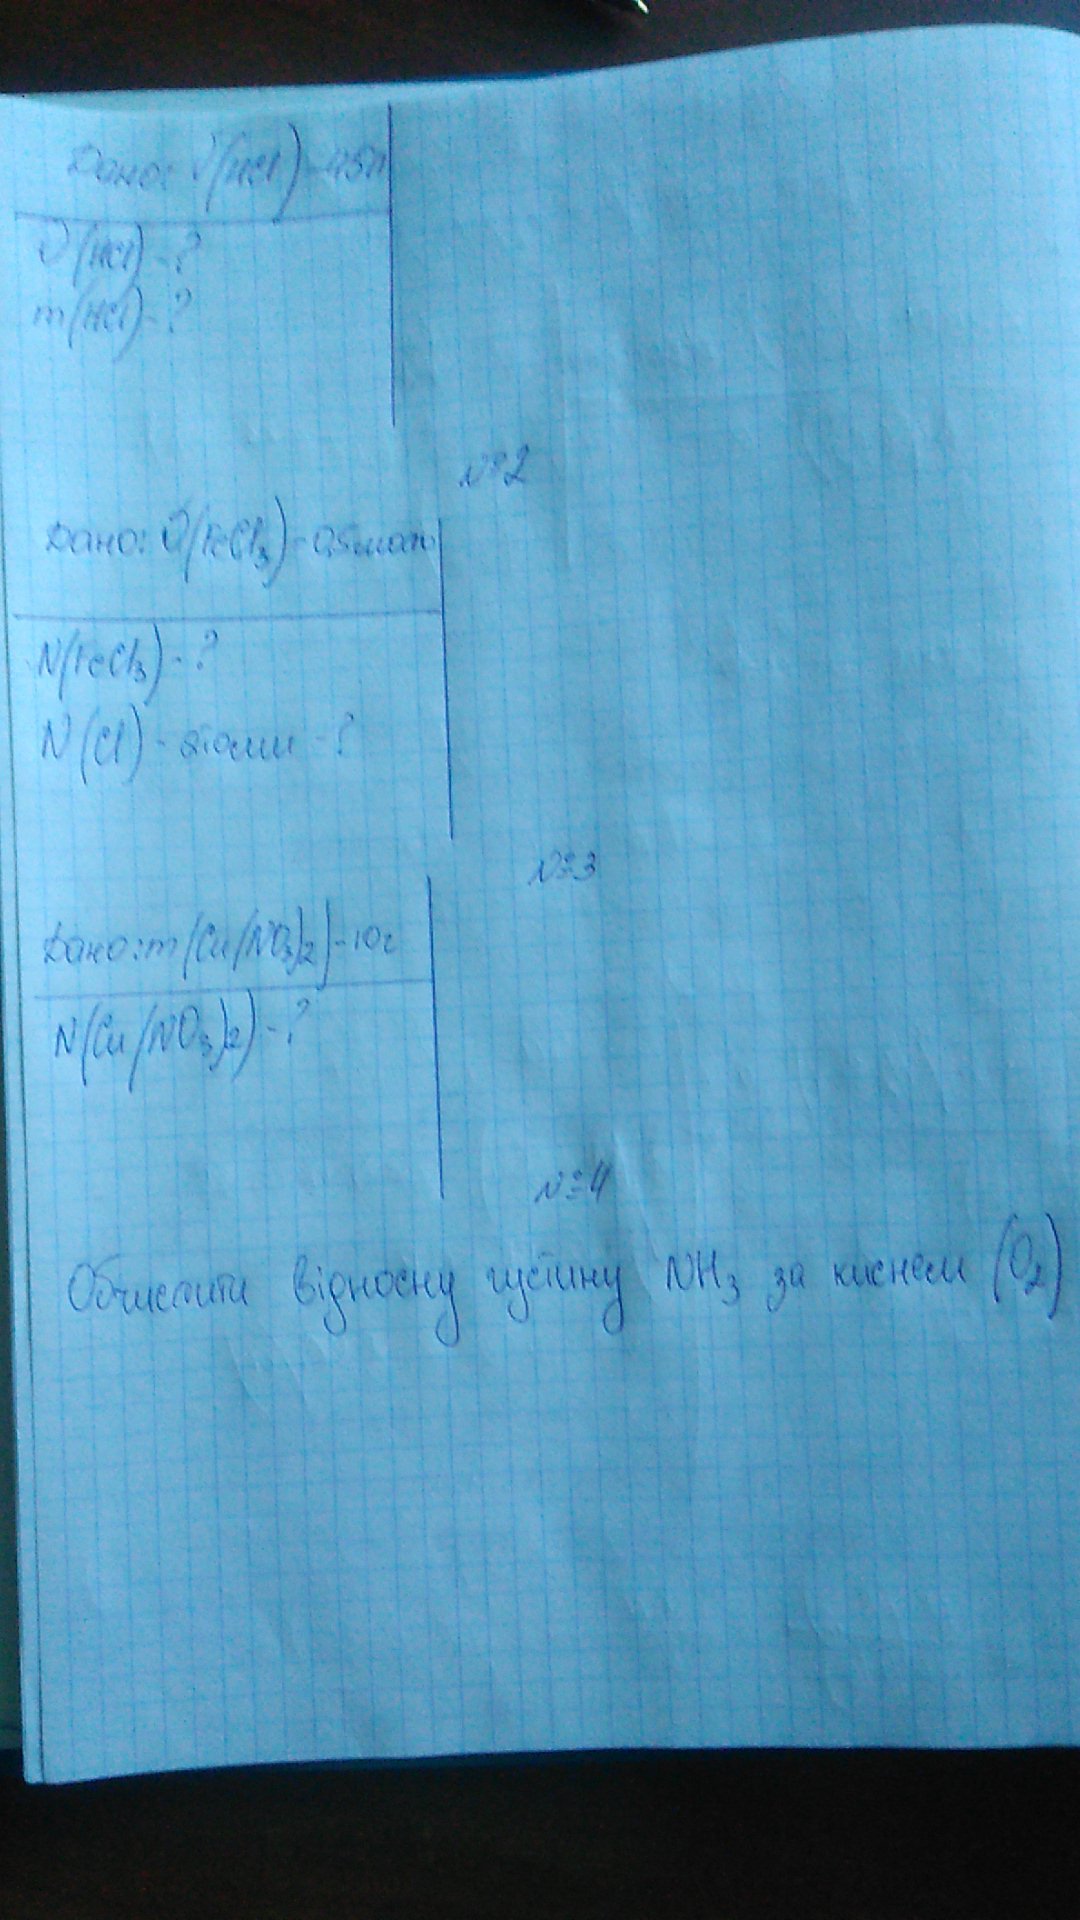 Дано: V(HCl) - 4,5л
ν(HCl) - ?
m(HCl) - ?
№2
Дано: ν(FeCl₃) - 0,5 моль
N(FeCl₃) - ?
N(Cl) - атоми - ?
№3
Дано: m(Cu(NO₃)₂) - 10г
N(Cu(NO₃)₂) - ?
№4
Обчислити відносну густину NH₃ за киснем (O₂)